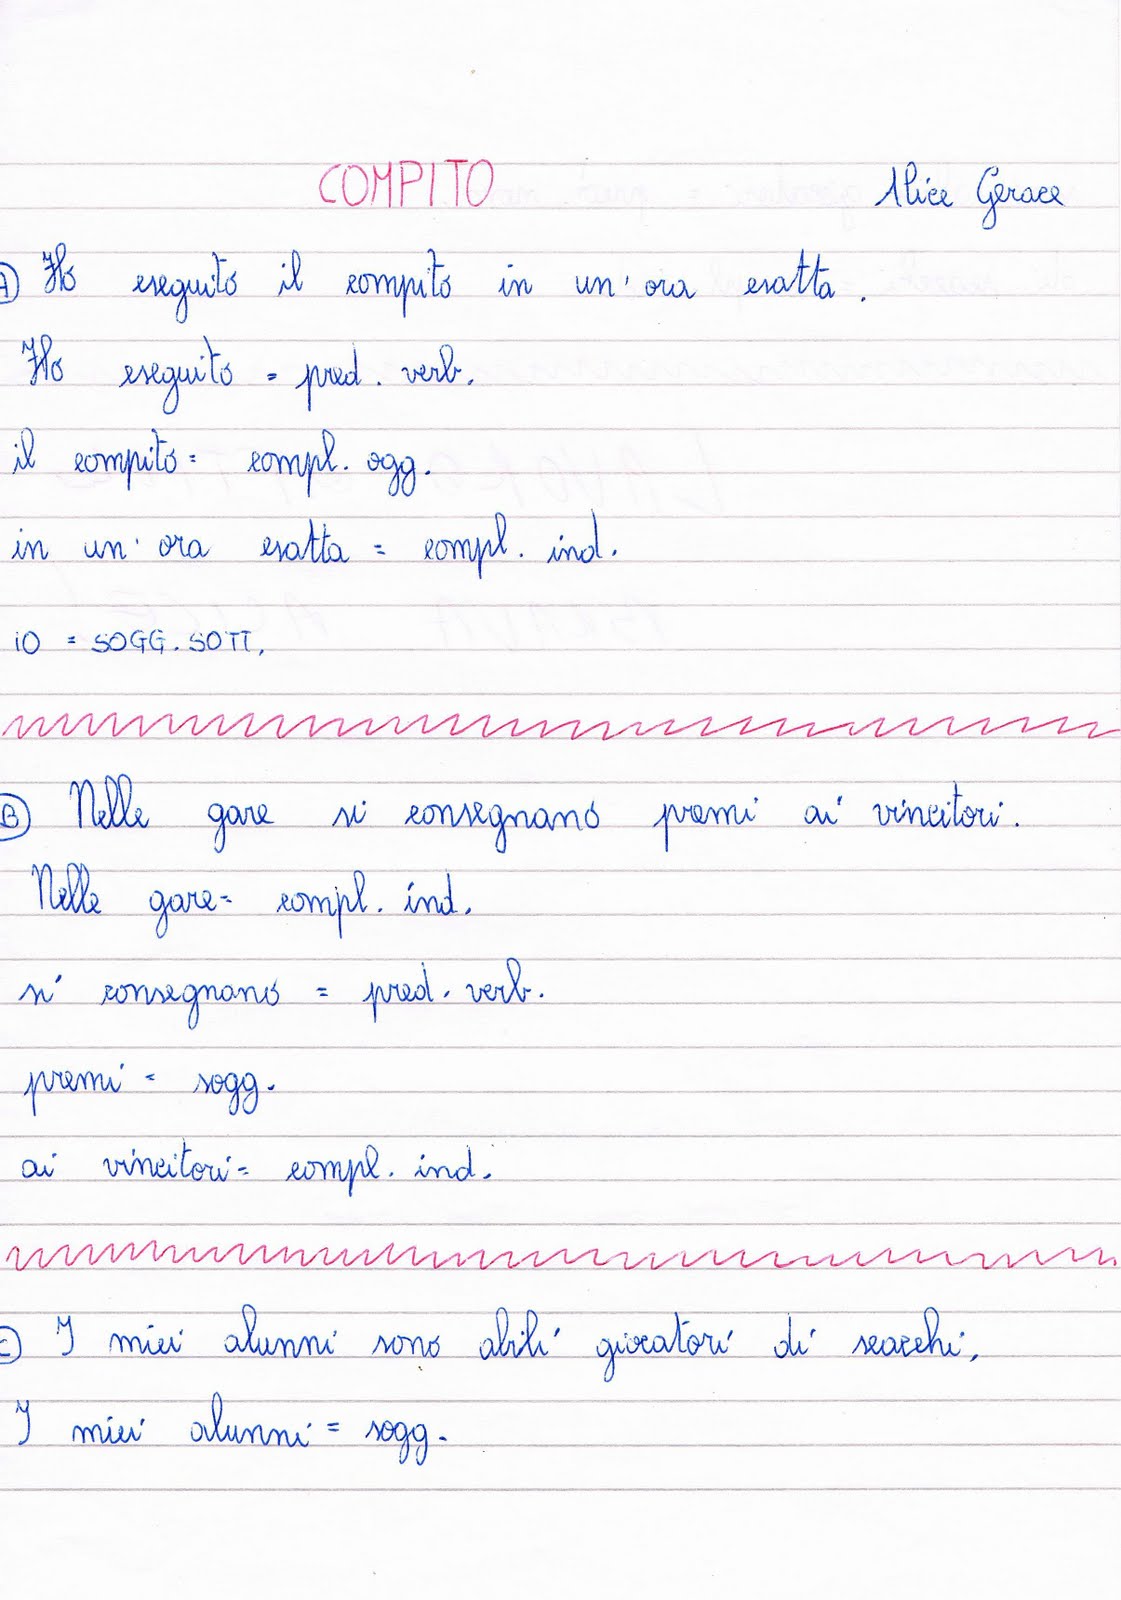 COMPITO Alice Gerace
A) Ho eseguito il compito in un'ora esatta.
Ho eseguito = pred. verb.
il compito = compl. ogg.
in un'ora esatta = compl. ind.
iO = SOGG. SOTT.
B) Nelle gare si consegnano premi ai vincitori.
Nelle gare = compl. ind.
si consegnano = pred. verb.
premi = sogg.
ai vincitori = compl. ind.
C) I miei alunni sono abili giocatori di scacchi.
I miei alunni = sogg.